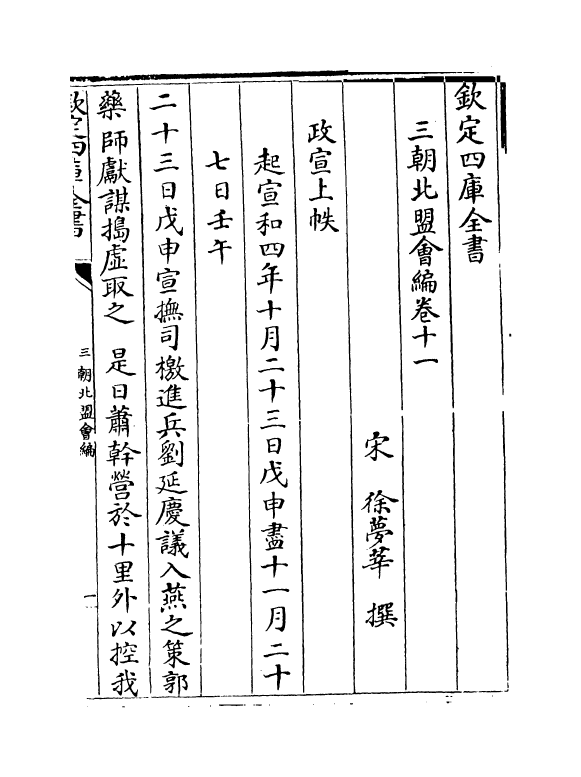 欽定四庫全書
三朝北盟會編卷十一
宋　徐夢莘　撰
政宣上帙
起宣和四年十月二十三日戊申盡十一月二十
七日壬午
二十三日戊申宣撫司檄進兵劉延慶議入燕之策郭
藥師獻謀搗虛取之　是日蕭幹營於十里外以控我
欽定四庫全書
三朝北盟會編
一